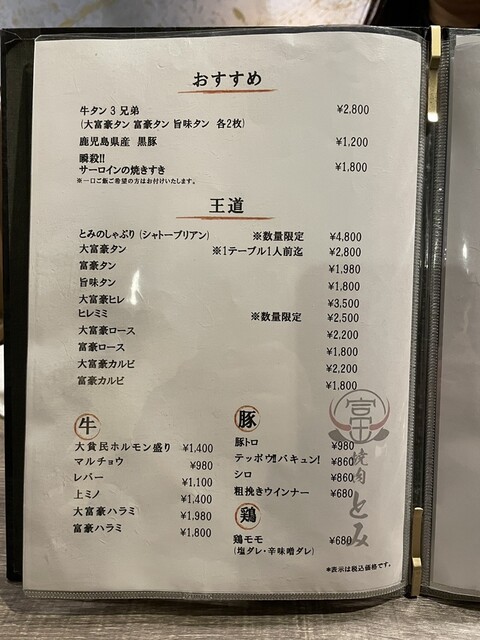 おすすめ
牛タン3兄弟 ¥2,800
(大富豪タン 富豪タン 旨味タン 各2枚)
鹿児島県産 黒豚 ¥1,200
瞬殺!!
サーロインの焼きすき ¥1,800
※一口ご飯ご希望の方はお付けいたします。
王道
とみのしゃぶり (シャトーブリアン) ※数量限定 ¥4,800
大富豪タン ※1テーブル1人前迄 ¥2,800
富豪タン ¥1,980
旨味タン ¥1,800
大富豪ヒレ ¥3,500
ヒレミミ ※数量限定 ¥2,500
大富豪ロース ¥2,200
富豪ロース ¥1,800
大富豪カルビ ¥2,200
富豪カルビ ¥1,800
牛
大貧民ホルモン盛り ¥1,400
マルチョウ ¥980
レバー ¥1,100
上ミノ ¥1,400
大富豪ハラミ ¥1,980
富豪ハラミ ¥1,800
豚
豚トロ ¥980
テッポウ!!バキュン! ¥860
シロ ¥860
粗挽きウインナー ¥680
鶏
鶏モモ ¥680
(塩ダレ・辛味噌ダレ)
富
焼肉とみ
*表示は税込価格です。